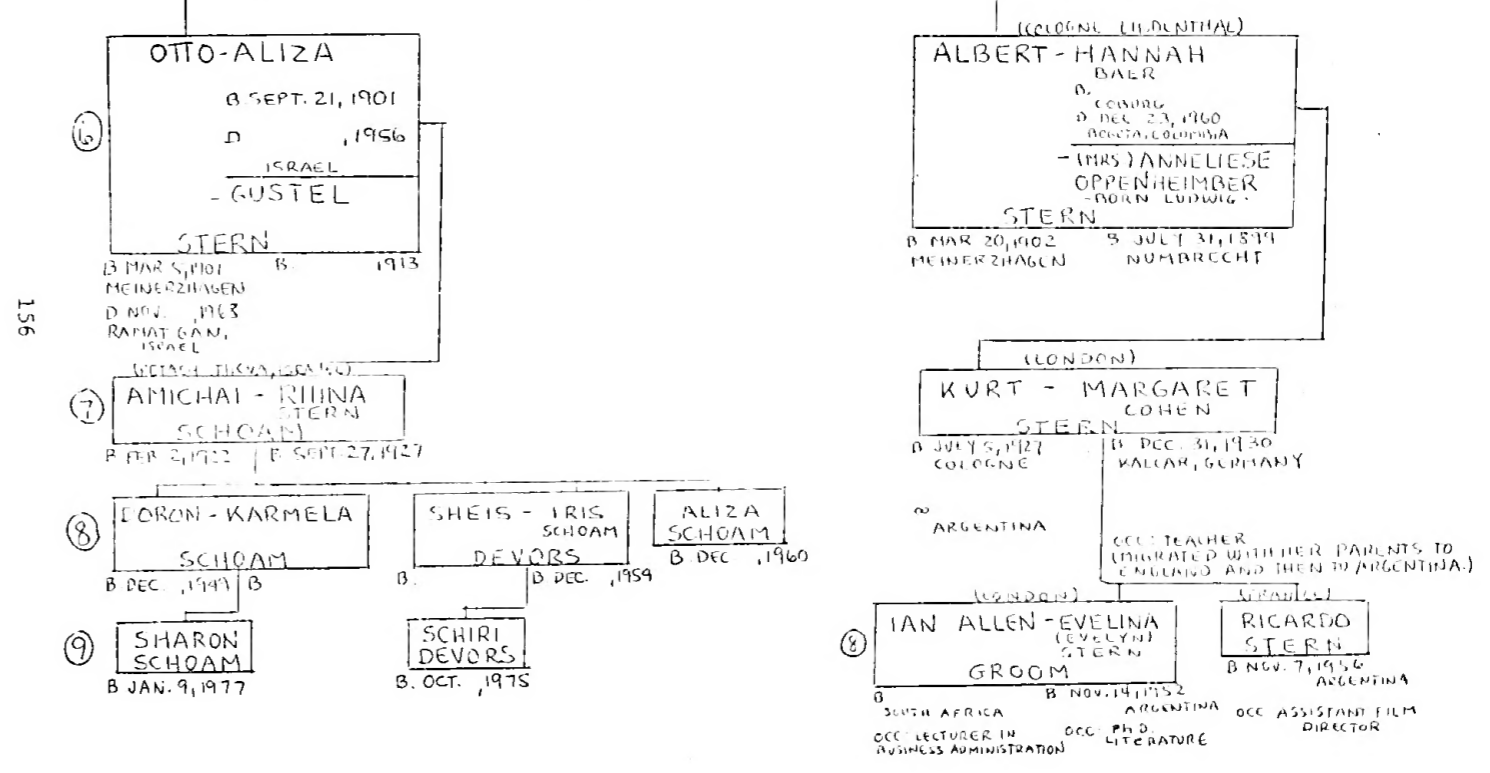 OTTO-ALIZA
B. SEPT. 21, 1901
D ,1956
ISRAEL
- GUSTEL
STERN
B MAR 5, 1901 B. 1913
MEINERZHAGEN
D NOV. ,1963
RAMAT GAN,
ISRAEL
6
156
(PETACH TIKVA, ISRAEL)
7
AMICHAI - RINA
STERN
SCHOAM
B FEB 2, 1922 B SEPT. 27, 1927
8
DORON - KARMELA
SCHOAM
B DEC. ,1949 B
SHEIS - IRIS
SCHOAM
DEVORS
B. B DEC. ,1954
ALIZA
SCHOAM
B. DEC ,1960
9
SHARON
SCHOAM
B JAN. 9, 1977
SCHIRI
DEVORS
B. OCT. ,1975
(COLOGNE LINDENTHAL)
ALBERT - HANNAH
BAER
B.
COBURG
D DEC 23, 1960
BOGOTA, COLOMBIA
- (MRS) ANNELIESE
OPPENHEIMBER
-BORN LUDWIG-
STERN
B MAR 20, 1902 B JULY 31, 1899
MEINERZHAGEN NUMBRECHT
(LONDON)
KURT - MARGARET
COHEN
STERN
B JULY 5, 1927 B DEC. 31, 1930
COLOGNE KALCAR, GERMANY
~
ARGENTINA
OCC: TEACHER
(MIGRATED WITH HER PARENTS TO
ENGLAND AND THEN TO ARGENTINA.)
8
(LONDON)
IAN ALLEN - EVELINA
(EVELYN)
STERN
GROOM
B B NOV. 14, 1952
SOUTH AFRICA ARGENTINA
OCC: LECTURER IN OCC: Ph.D.
BUSINESS ADMINISTRATION LITERATURE
RICARDO
STERN
B NOV. 7, 1956
ARGENTINA
OCC ASSISTANT FILM
DIRECTOR